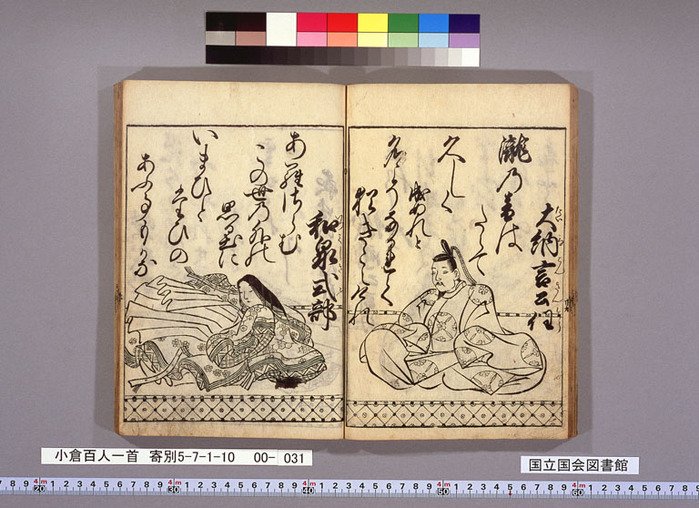 大納言公任
瀧乃音は
たえて
久しく
成ぬれと
名こそなかれて
猶きこえけれ
和泉式部
あらさらむ
この世乃外の
思ひ出に
いまひと
たひの
あふこともかな
小倉百人一首 寄別5-7-1-10 00- 031
国立国会図書館